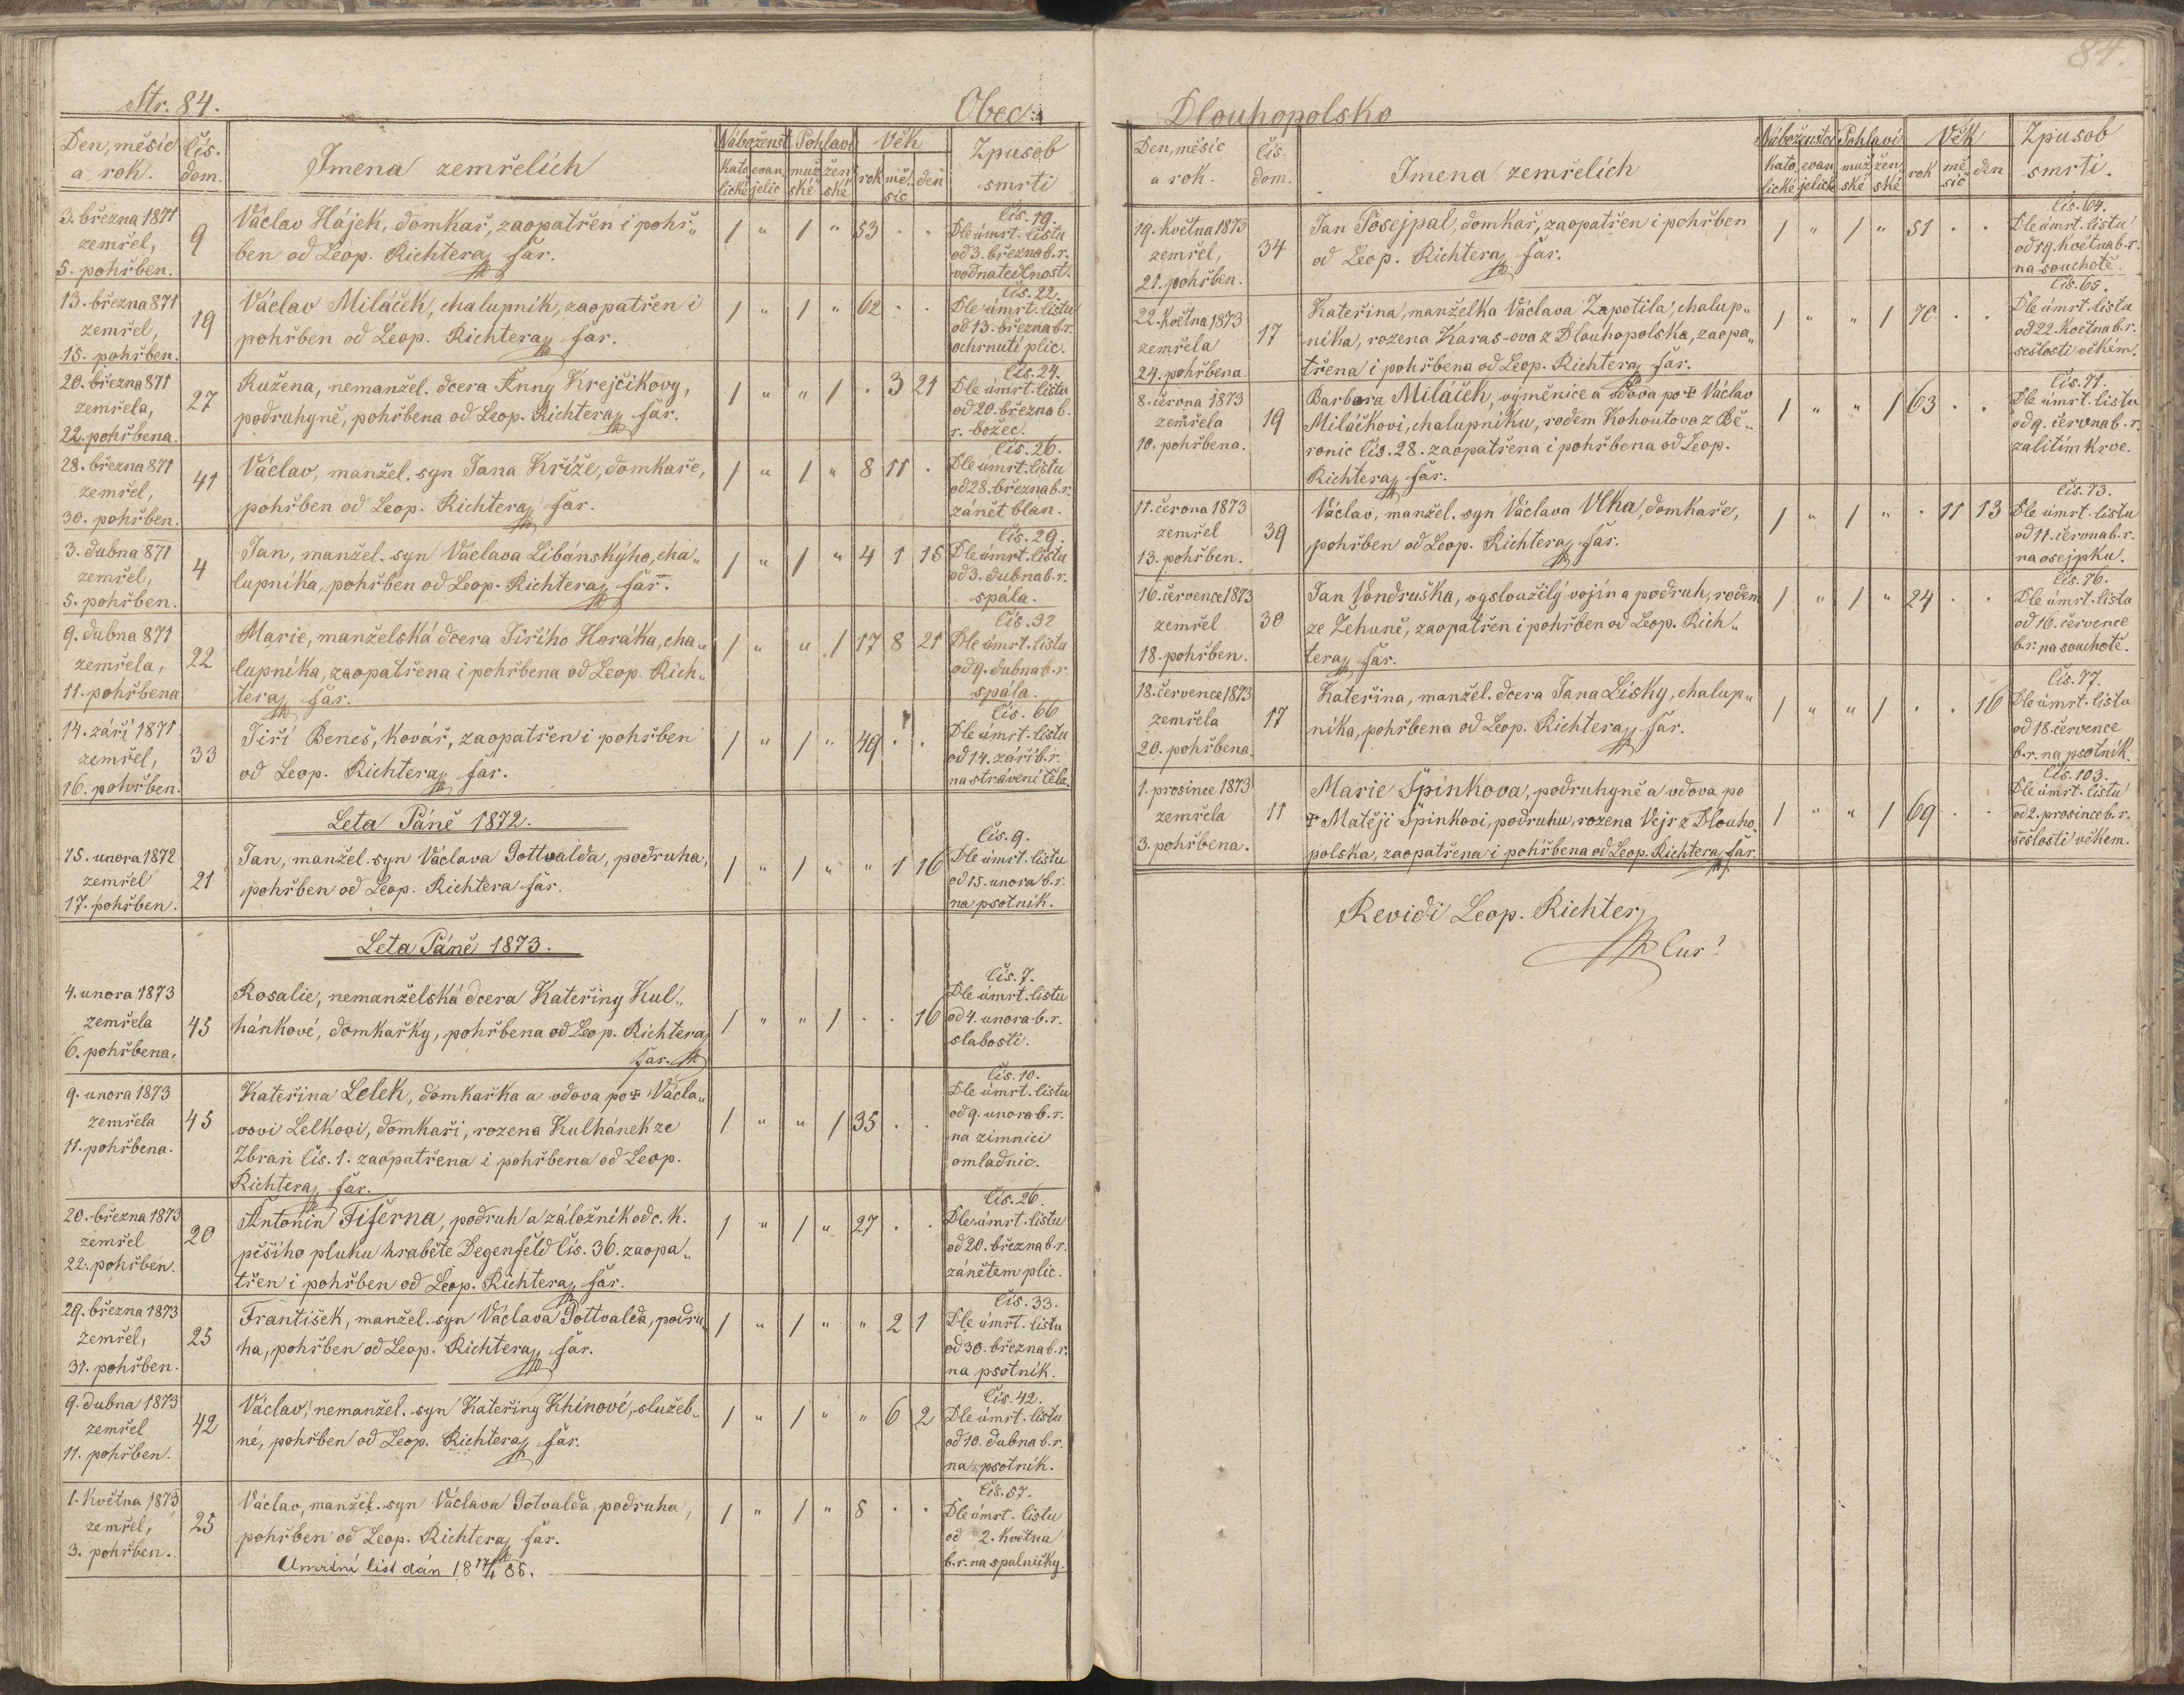 Str. 84.
Obec:
Den, měsíc a rok.
čís. dom.
Jmena zemřelích
Náboženst.
Kato lické
evan jelic
Pohlaví
muž ské
žen ské
Věk
rok
mě. síc
den
Zpusob smrti
3. března 1871
zemřel,
5. pohřben.
9
Václav Hájek, domkař, zaopatřen i pohř„
ben od Leop. Richtera far.
1 „ 1 „ 53 . .
Čís. 19.
Dle úmrt. listu
od 3. března b. r.
vodnatedlnost.
13. března 871
zemřel,
15. pohřben.
19
Václav Miláček, chalupník, zaopatřen i
pohřben od Leop. Richtera far.
1 „ 1 „ 62 . .
Čís. 22.
Dle úmrt. listu
od 13. března b. r.
ochrnutí plic.
20. března 871
zemřela,
22. pohřbena.
27
Ružena, nemanžel. dcera Anny Krejčikovy,
podruhyně, pohřbena od Leop. Richtera far.
1 „ „ 1 . 3 21
Čís. 24.
Dle úmrt. listu
od 20. března b.
r. božec.
28. března 871
zemřel,
30. pohřben.
41
Václav, manžel. syn Jana Kříže, domkaře,
pohřben od Leop. Richtera far.
1 „ 1 „ 8 11 .
Čís. 26.
Dle úmrt. listu
od 28. března b. r.
zánět blan.
3. dubna 871
zemřel,
5. pohřben.
4
Jan, manžel. syn Václava Libánskýho, cha„
lupníka, pohřben od Leop. Richtera far.
1 „ 1 „ 4 1 15
Čís. 29.
Dle úmrt. listu
od 3. dubna b. r.
spála.
9. dubna 871
zemřela,
11. pohřbena
22
Marie, manželská dcera Jiřího Horáka, cha„
lupníka, zaopatřena i pohřbena od Leop. Rich„
tera far.
1 „ „ 1 17 8 21
Čís. 32
Dle úmrt. listu
od 9. dubna b. r.
spála.
14. září 1871
zemřel,
16. pohřben.
33
Jiří Beneš, kovář, zaopatřen i pohřben
od Leop. Richtera far.
1 „ 1 „ 49 . .
Čís. 66
Dle úmrt. listu
od 14. září b. r.
na strávení těla.
Leta Páně 1872.
15. unora 1872
zemřel
17. pohřben.
21
Jan, manžel. syn Václava Gottvalda, podruha,
pohřben od Leop. Richtera far.
1 „ 1 „ „ 1 16
Čís. 9.
Dle úmrt. listu
od 15. unora b. r.
na psotník.
Leta Páně 1873.
4. unora 1873
zemřela
6. pohřbena.
45
Rosalie, nemanželská dcera Kateřiny Kul„
hánkové, domkařky, pohřbena od Leop. Richtera
far.
1 „ „ 1 . . 16
Čís. 7.
Dle úmrt. listu
od 4. unora b. r.
slabosti.
9. unora 1873
zemřela
11. pohřbena.
45
Kateřina Lelek, domkařka a vdova po † Václa„
vovi Lelkovi, domkaři, rozena Kulhánek ze
Zbraň čís. 1. zaopatřena i pohřbena od Leop.
Richtera far.
1 „ „ 1 35 . .
Čís. 10.
Dle úmrt. listu
od 9. unora b. r.
na zimnici
omladnic.
20. března 1873
zemřel
22. pohřben.
20
Antonín Fišerna, podruh a záložník od c. k.
pěšího pluku hraběte Degenfeld čís. 36. zaopa„
třen i pohřben od Leop. Richtera far.
1 „ 1 „ 27 . .
Čís. 26.
Dle úmrt. listu
od 20. března b. r.
zánětem plic.
29. března 1873
zemřel,
31. pohřben.
25
František, manžel. syn Václava Gottvalda, podru„
ha, pohřben od Leop. Richtera far.
1 „ 1 „ „ 2 1
Čís. 33.
Dle úmrt. listu
od 30. března b. r.
na psotník.
9. dubna 1873
zemřel
11. pohřben.
42
Václav, nemanžel. syn Kateřiny Khinové, služeb„
né, pohřben od Leop. Richtera far.
1 „ 1 „ „ 6 2
Čís. 42.
Dle úmrt. listu
od 10. dubna b. r.
na psotník.
1. Května 1873
zemřel,
3. pohřben.
25
Václav, manžel. syn Václava Gotvalda, podruha,
pohřben od Leop. Richtera far.
Umrtní list dán
1 „ 1 „ 8 . .
Čís. 57.
Dle úmrt. listu
od 2. května
b. r. na spalničky.
84.
Dlouhopolsko
Den, měsíc a rok.
čís. dom.
Jmena zemřelích
Náboženstv.
Kato lické
evan jelick
Pohlaví
muž ské
žen ské
Věk
rok
mě síc
den
Zpusob smrti.
19. Května 1873
zemřel,
21. pohřben.
34
Jan Posejpal, domkař, zaopatřen i pohřben
od Leop. Richtera far.
1 „ 1 „ 51 . .
Čís. 64.
Dle úmrt. listu
od 19. května b. r.
na souchotě.
22. Května 1873
zemřela
24. pohřbena.
17
Kateřina, manželka Václava Zapotila, chalup„
níka, rozena Karas-ova z Dlouhopolska, zaopa„
třena i pohřbena od Leop. Richtera far.
1 „ „ 1 70 . .
Čís. 65.
Dle úmrt. listu
od 22. května b. r.
sešlosti věkém.
8. června 1873
zemřela
10. pohřbena.
19
Barbora Miláček, výměnice a vdova po † Václav
Miláčkovi, chalupníku, rodem Kohoutova z Bě„
ronic čís. 28. zaopatřena i pohřbena od Leop.
Richtera far.
1 „ „ 1 63 . .
Čís. 71.
Dle úmrt. listu
od 9. června b. r.
zalitím krve.
11. června 1873
zemřel
13. pohřben.
39
Václav, manžel. syn Václava Vlka, domkaře,
pohřben od Leop. Richtera far.
1 „ 1 „ . 11 13
Čís. 73.
Dle úmrt. listu
od 11. června b. r.
na osejpku.
16. července 1873
zemřel
18. pohřben.
30
Jan Vondruška, vysloužilý vojín a podruh, rodem
ze Žehuně, zaopatřen i pohřben od Leop. Rich„
tera far.
1 „ 1 „ 24 . .
Čís. 76.
Dle úmrt. listu
od 16. července
b. r. na souchotě.
18. července 1873
zemřela
20. pohřbena.
17
Kateřina, manžel. dcera Jana Lisky, chalup„
níka, pohřbena od Leop. Richtera far.
1 „ „ 1 . . 16
Čís. 77.
Dle úmrt. listu
od 18. července
b. r. na psotník.
1. prosince 1873
zemřela
3. pohřbena.
11
Marie Špinkova, podruhyně a vdova po
† Matěji Špinkovi, podruhu, rozena Vejr z Dlouho„
polska, zaopatřena i pohřbena od Leop. Richtera far.
1 „ „ 1 69 . .
Čís. 103.
Dle úmrt. listu
od 2. prosince b. r.
sešlosti věkem.
Revidi Leop. Richter
Cur.